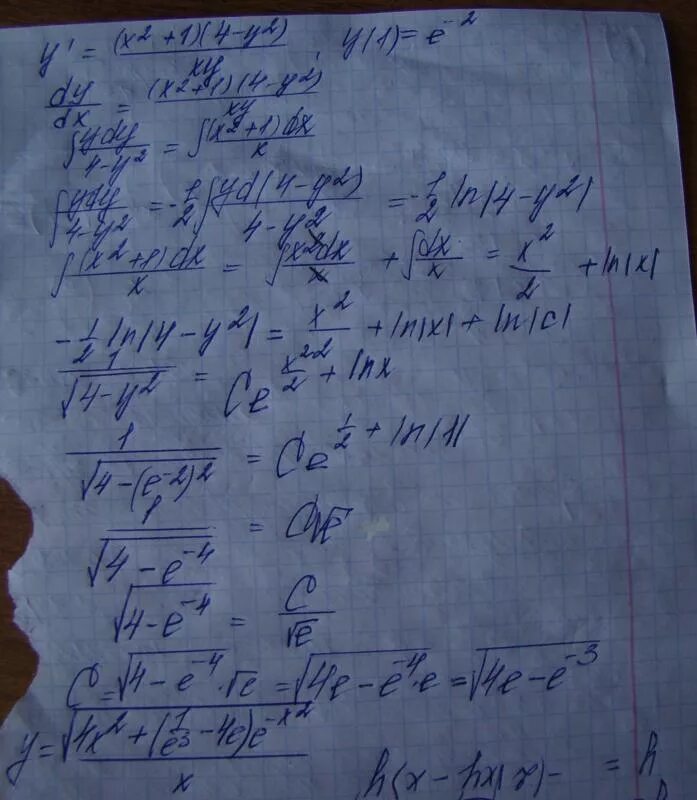 y' = (x² + 1)(4 − y²)/xy, y(1) = e⁻²
dy/dx = (x² + 1)(4 − y²)/xy
∫ ydy/4−y² = ∫ (x² + 1)dx/x
∫ ydy/4−y² = −1/2 ∫ yd(4 − y²)/4 − y² = −1/2 ln|4 − y²|
∫ (x² + 1)dx/x = ∫ x²dx/x + ∫ dx/x = x²/2 + ln|x|
−1/2 ln|4 − y²| = x²/2 + ln|x| + ln|C|
1/√4−y² = Ce^x²/2 + lnx
1/√4−(e⁻²)² = Ce^1/2 + ln|1|
1/√4 − e⁻⁴ = C√e
√4−e⁻⁴ = C/√e
C = √4 − e⁻⁴ · √e = √4e − e⁻⁴ · e = √4e − e⁻³
y = √4x² + (1/e³ − 4e)e⁻ˣ²/x